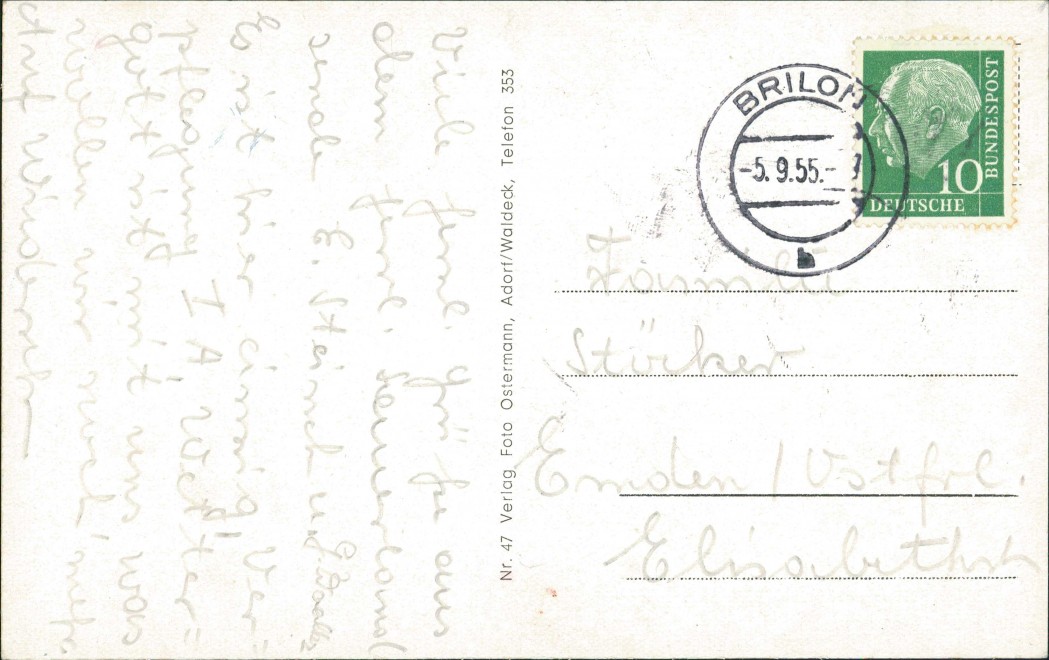 Viele herzl. Grüße aus
dem
sende
Es ist hier einzig! Ver=
pflegung I A Wetter=
gott ist mit uns was
wollen wir noch mehr
Auf Wiedersch
Nr. 47 Verlag Foto Ostermann, Adorf/Waldeck, Telefon 353
BRILON
-5.9.55.-
b
10
BUNDESPOST
DEUTSCHE
Familie
Stöcker
Emden / Ostfrl.
Elisabethstr